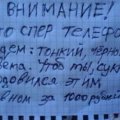 ВНИМАНИЕ!
то спёр телефо
дем: тонкий, чёрно
вета. Чтоб ты, сука
давился этим
вном за 1000 рублей